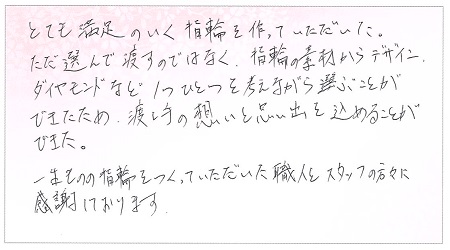 とても満足のいく指輪を作っていただいた。
ただ選んで渡すのではなく、指輪の素材からデザイン、
ダイヤモンドなど1つひとつを考えながら選ぶことが
できたため、渡し手の想いと思い出を込めることが
できた。
一生ものの指輪をつくっていただいた職人とスタッフの方々に
感謝しております。